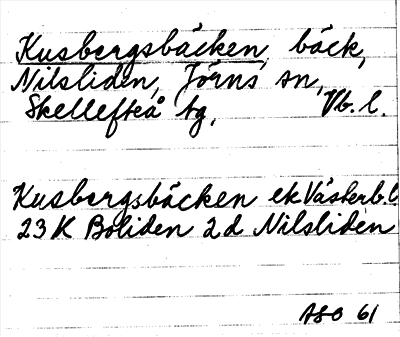 Kusbergsbäcken, bäck,
Nilsliden, Jörns sn,
Skellefteå tg, Vb. l.
Kusbergsbäcken ek Västerb. l
23 K Boliden 2d Nilsliden
ASO 61